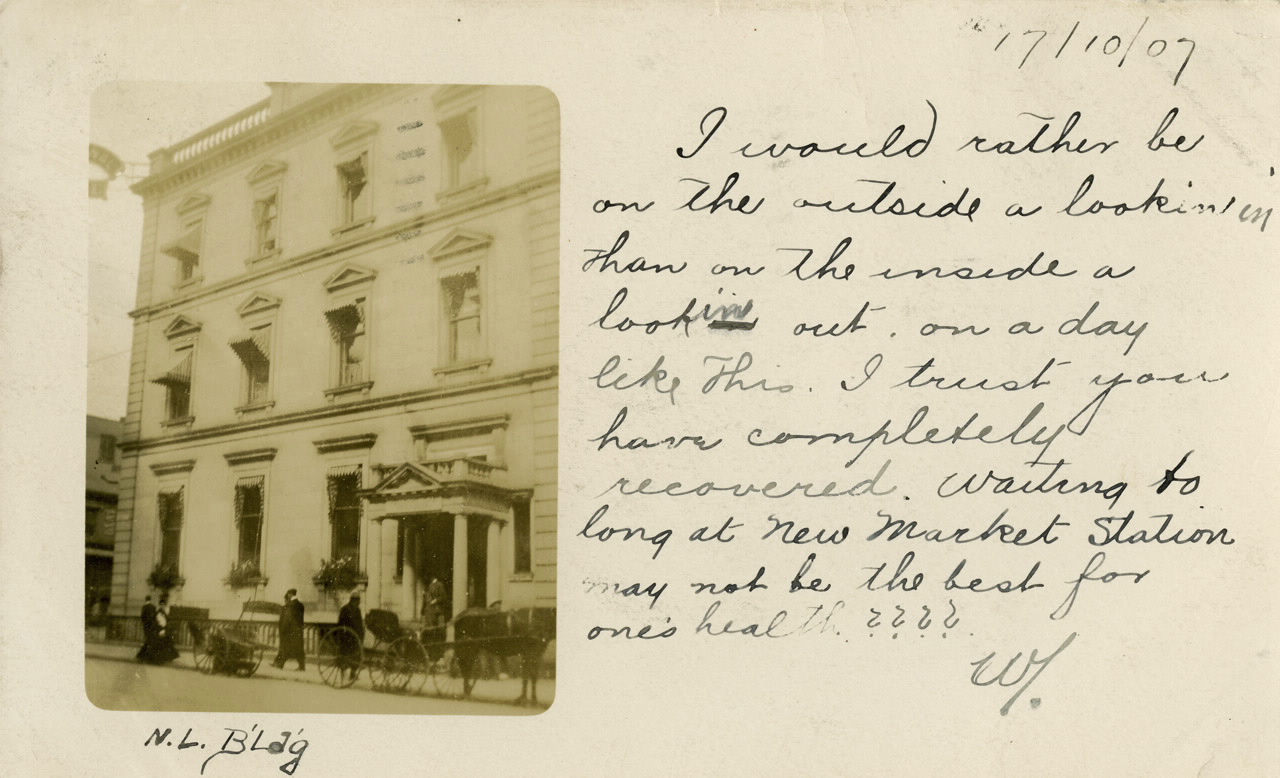 17/10/07
I would rather be
on the outside a lookin' in
than on the inside a
lookin out. on a day
like this. I trust you
have completely
recovered. Waiting to
long at New Market Station
may not be the best for
one's health. ????
W/.
N.L. B'ld'g